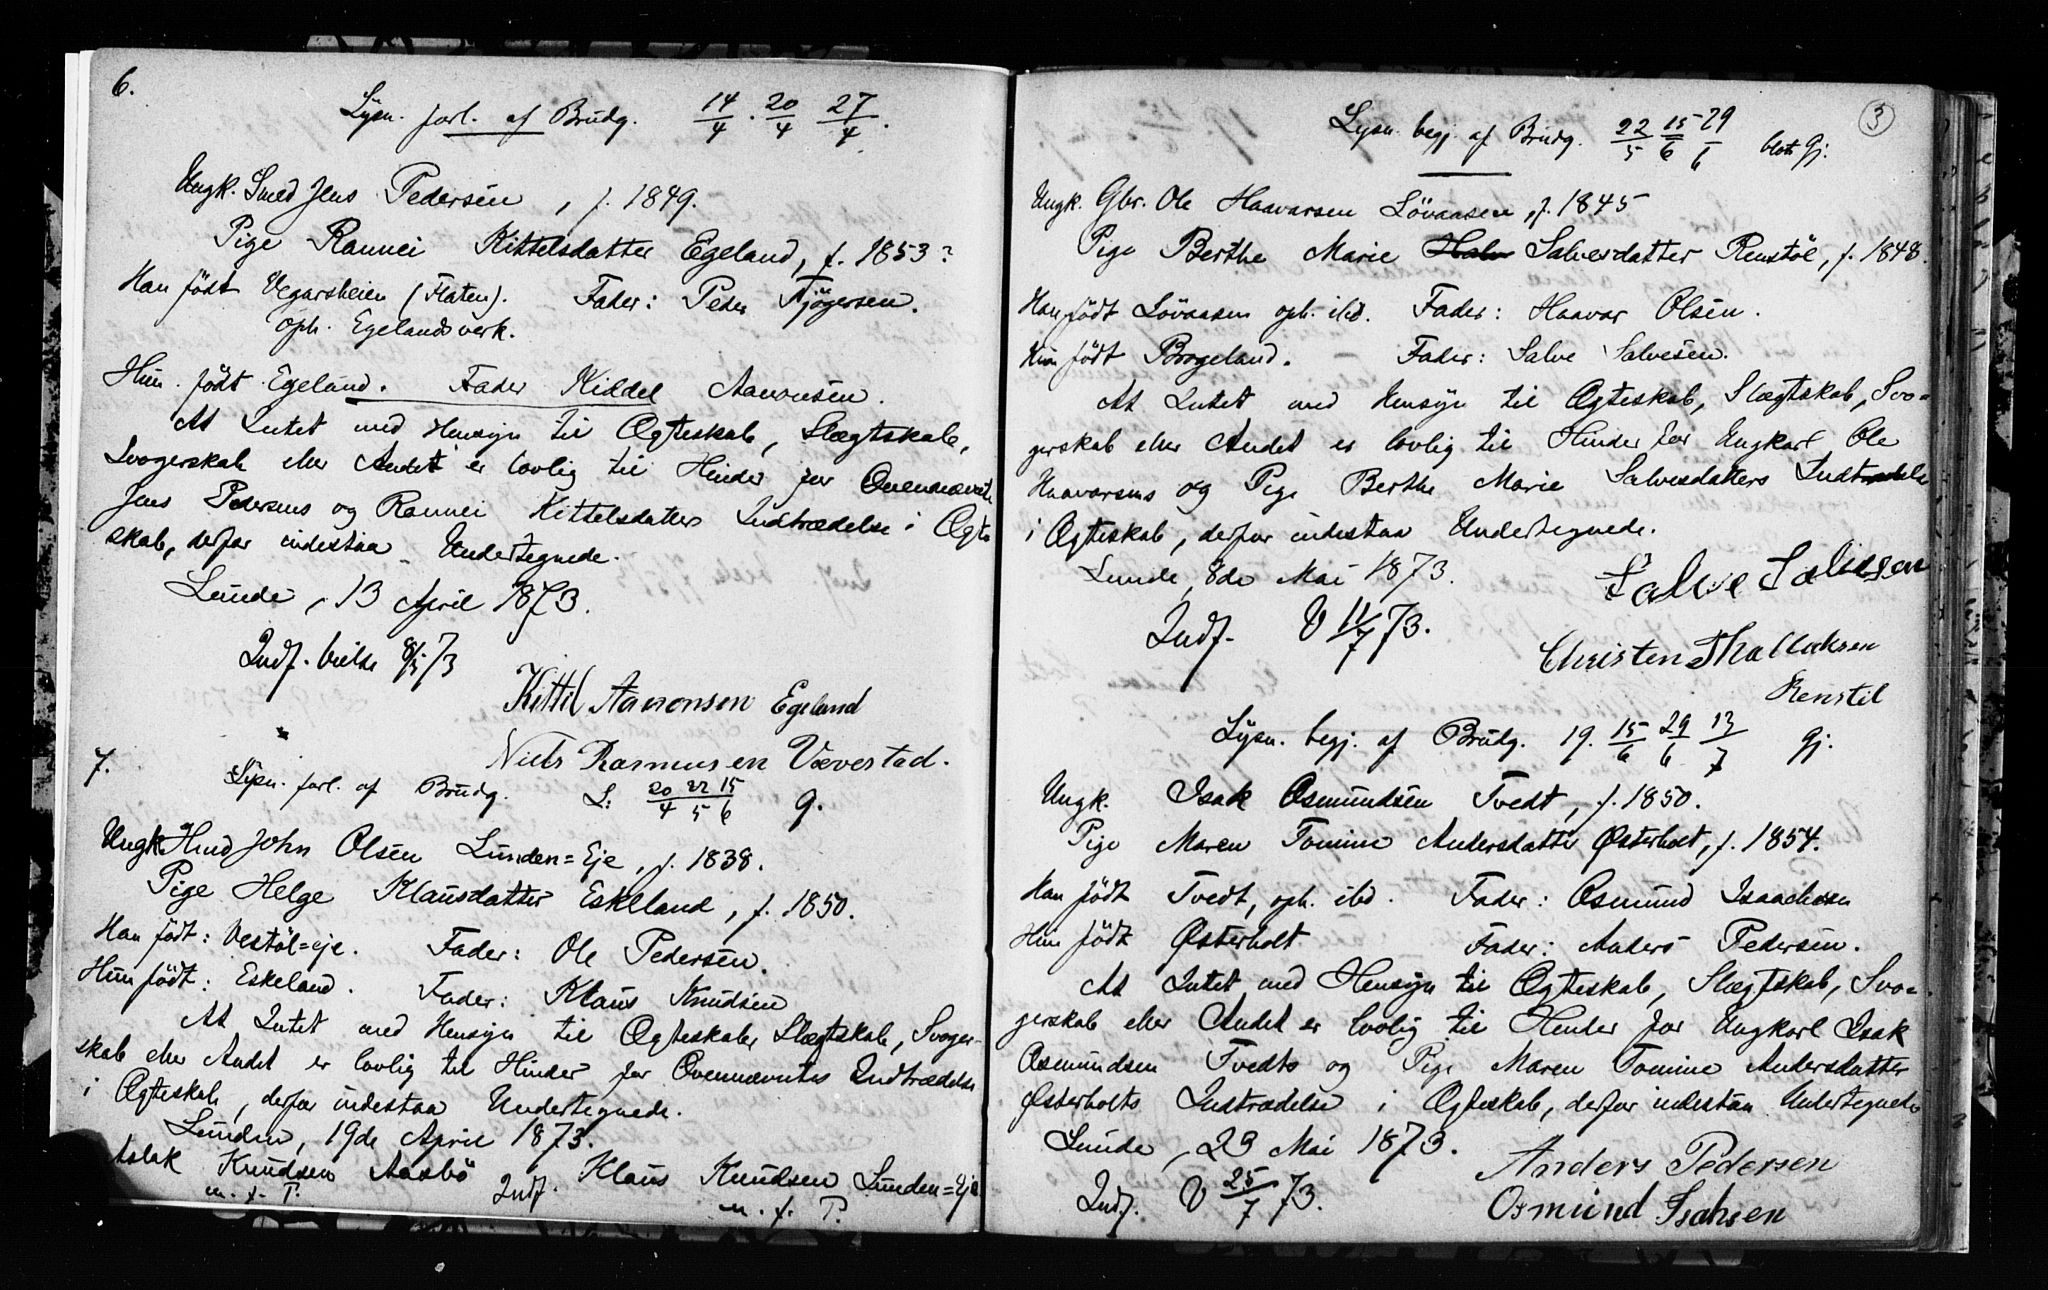 6.
Lysn. forl. af Brudg. 14/4 . 20/4 27/4.
Ungk. Smed Jens Pedersen, f. 1849.
Pige Rannei Kittelsdatter Egeland, f. 1853?
Han född Vegarsheien (Flaten). Fader: Peder Tjögersen.
oph. Egelandsverk.
Hun födt Egeland. Fader Kiddel Aanonsen.
At Intet med Hensyn til Ægteskab, Slægtskab,
Svogerskab eller Andet er lovlig til Hinder for Ovennævnte
Jens Pedersens og Rannei Kittelsdatters Indtrædelse i Ægte
skab, derfor indestaa Undertegnede.
Lunde, 13 April 1873.
Indf. 8/5 73
Kittil Aanonsen Egeland
Niels Rasmusen Vævestad.
7.
Lysn. forl. af Brudg. L: 20/4 22/5 15/6 g.
Ungk. Hmd John Olsen Lunden=Eje, f. 1838.
Pige Helge Klausdatter Eskeland, f. 1850.
Han födt: Vestöl=eje. Fader: Ole Pedersen.
Hun födt: Eskeland. Fader: Klaus Knudsen
At Intet med Hensyn til Ægteskab, Slægtskab, Svoger-
skab eller Andet er lovlig til Hinder for Ovennævntes Indtrædelse
i Ægteskab, derfor indestaa Undertegnede.
Lunden, 19de April 1873.
Aslak Knudsen Aasbö Indf. Klaus Knudsen Lunden=Eje
m. f. P. m. f. P.
3
Lysn. begj. af Brudg. 22/5 15/6 29/6 blott Gj.
Ungk. Gbr. Ole Haavarsen Lövaasen, f. 1845
Pige Berthe Marie Halv Salvesdatter Renstöl, f. 1848.
Han födt Lövaasen oph. ibd. Fader: Haavar Olsen.
Hun födt Brogeland. Fader: Salve Salvesen.
At Intet med Hensyn til Ægteskab, Slægtskab, Svo=
gerskab eller Andet er lovlig til Hinder for Ungkarl Ole
Haavarsens og Pige Berthe Marie Salvesdatters Indtrædelse
i Ægteskab, derfor indestaa Undertegnede.
Lunde, 8de Mai 1873.
Salve Salvesen
Indf. V 11/7 73.
Christen Thallaksen
Renstöl
Lysn. begj. af Brudg. 19. 15/6 29/6 13/7 Gj.
Ungk. Isak Osmundsen Tvedt, f. 1850.
Pige Maren Tomine Andersdatter Østerholt, f. 1854.
Han födt Tvedt, oph. ibd. Fader: Osmund Isaachsen
Hun födt Østerholt Fader: Anders Pedersen.
At Intet med Hensyn til Ægteskab, Slægtskab, Svo=
gerskab eller Andet er lovlig til Hinder for Ungkarl Isak
Osmundsen Tvedts og Pige Maren Tomine Andersdatter
Østerholts Indtrædelse i Ægteskab, derfor indestaa Undertegnede
Lunde, 23 Mai 1873.
Anders Pedersen
Indf. V 25/7 73.
Osmund Isaksen